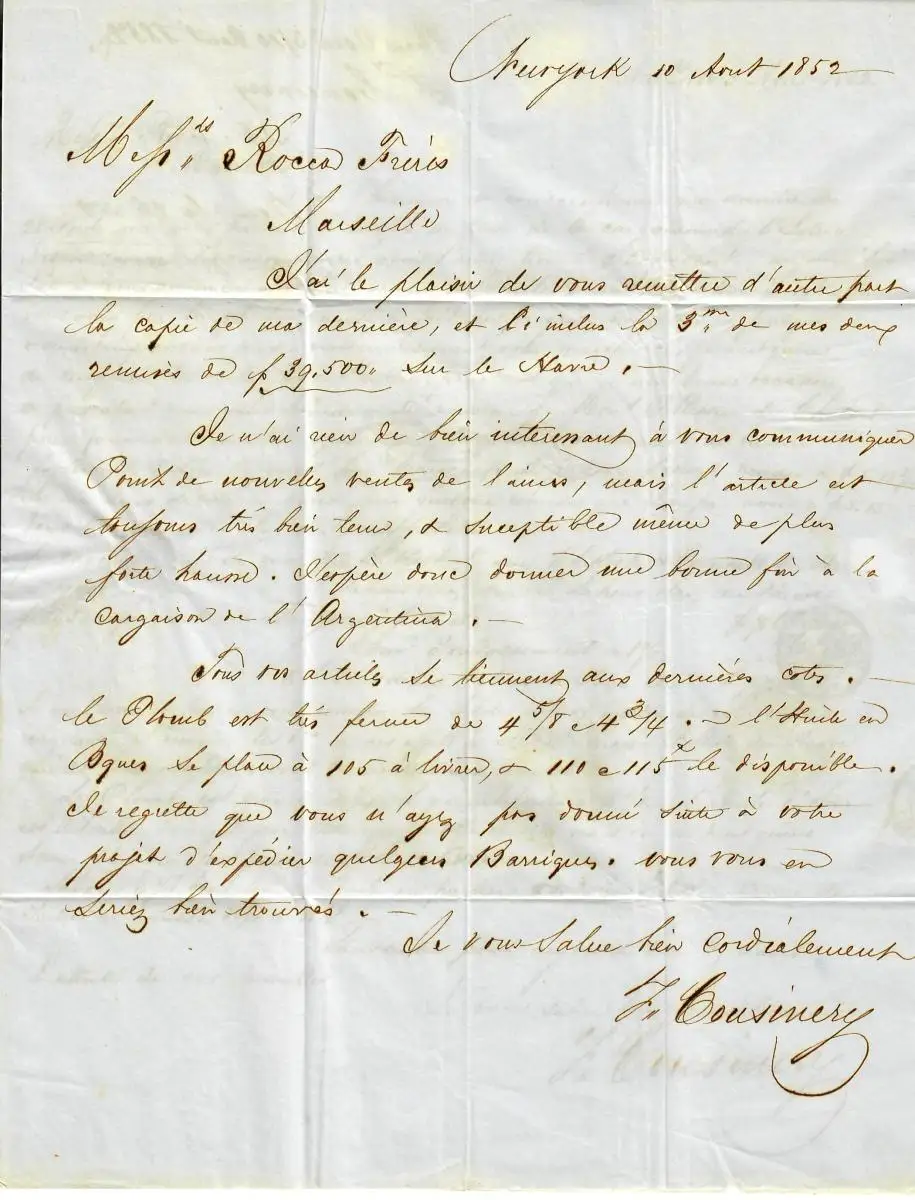 Newyork 10 Aout 1852
Mess.rs Rocca Frères
Marseille
J'ai le plaisir de vous remettre d'autre part
la copie de ma dernière, et ci inclus la 3me de mes deux
remises de f 39.500 sur le Havre. —
Je n'ai rien de bien intéressant à vous communiquer
Point de nouvelles ventes de laines, mais l'article est
toujours très bien tenu, & suceptible même de plus
forte hausse. J'espère donc donner une bonne fin à la
cargaison de l'Argentina. —
Tous vos articles se tiennent aux dernières cotes. —
le Plomb est très ferme de 4 5/8 a 4 3/4. — l'Huile en
Bques se place à 105 à livrer, & 110 a 115 le disponible.
Je regrette que vous n'ayez pas donné suite à votre
projet d'expédier quelques Barriques. vous vous en
seriez bien trouvés. —
Je vous salue bien cordialement
F. Cousinery